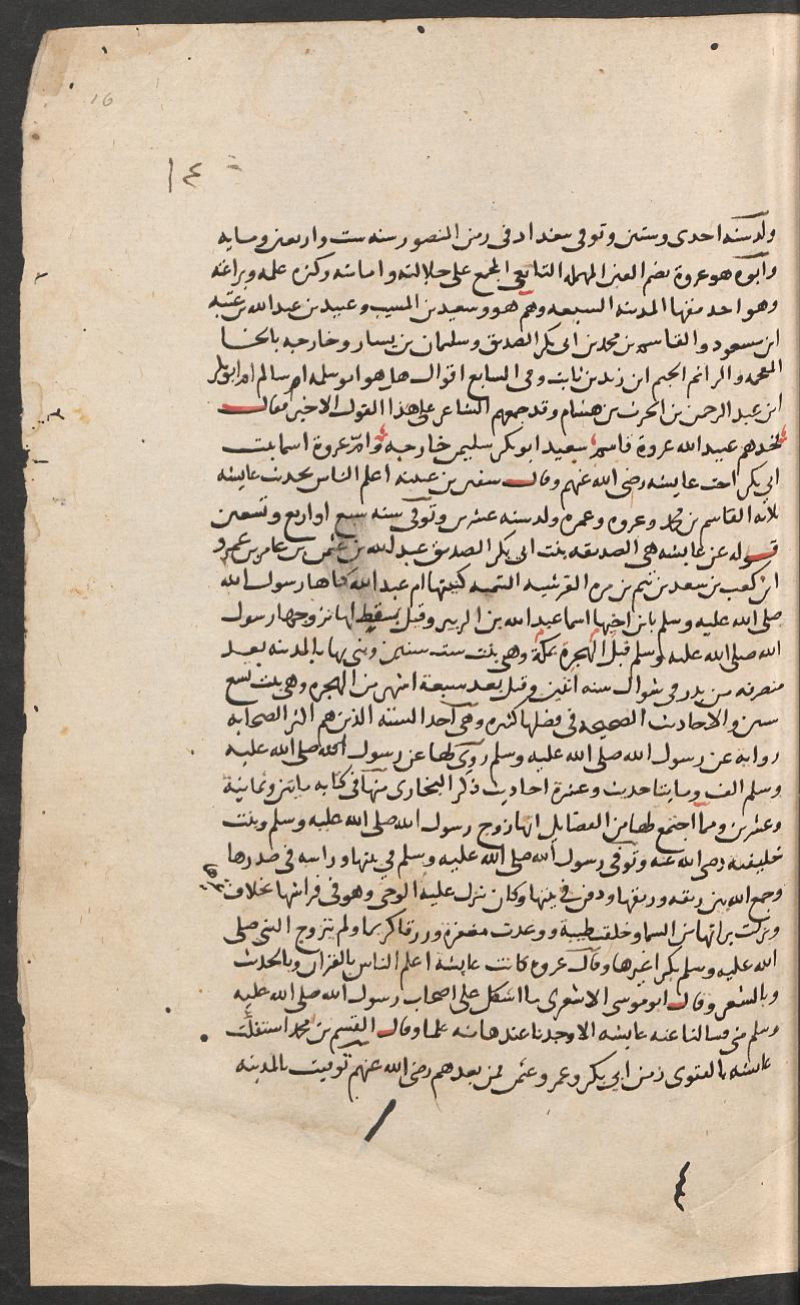 16
١٤
ولد سنه احدى وستين وتوفى ببغداد فى زمن المنصور سنه ست واربعين ومايه
وابوه هو عروة بضم العين المهمله التابعي المجمع على جلالته وامامته وكثرة علمه وبراعته
وهو احد فقها المدينه السبعه وهم هو وسعيد بن المسيب وعبيد بن عبد الله بن عتبه
ابن مسعود والقاسم بن محمد بن ابى بكر الصديق وسليمان بن يسار وخارجه بالخا
المعجمه والرا ثم الجيم ابن زيد بن ثابت وفى السابع اقوال هل هو ابو سلمه ام سالم ام ابو بكر
ابن عبد الرحمن بن الحرث بن هشام وقد جمعهم الشاعر على هذا القول الاخير فقال
فخذهم عبيد الله عروة قاسم سعيد ابو بكر سليمن خارجه وام عروة اسما بنت
ابي بكر اخت عايشه رضى الله عنهم وقال سفين بن عيينه اعلم الناس بحديث عايشه
ثلاثه القاسم بن محمد وعروه وعمره ولد سنه عشرين وتوفى سنه سبع او اربع وتسعين
قوله عن عايشه هى الصديقه بنت ابى بكر الصديق عبد الله بن عثمن بن عامر بن عمرو
ابن كعب بن سعد بن تيم بن مره القرشيه التيميه كنيتها ام عبد الله كناها رسول الله
صلى الله عليه وسلم بابن اختها اسما عبد الله بن الزبير وقيل بسقط لها تزوجها رسول
الله صلى الله عليه وسلم قبل الهجرة بمكة وهى بنت ست سنين وبنى بها بالمدينه بعد
منصرفه من بدر فى شوال سنه اثنين وقيل بعد سبعة اشهر من الهجره وهى بنت تسع
سنين والاحاديث الصحيحه فى فضلها كثيره وهى احد السته الذين هم اكثر الصحابه
روايه عن رسول الله صلى الله عليه وسلم روى لها عن رسول الله صلى الله عليه
وسلم الف ومايتا حديث وعشرة احاديث ذكر البخارى منها فى كتابه مايتين وثمانية
وعشرين ومما اجتمع لها من الفضايل انها زوج رسول الله صلى الله عليه وسلم وبنت
خليفته رضى الله عنه وتوفى رسول الله صلى الله عليه وسلم في بيتها وراسه فى صدرها
وجمع الله بين ريقه وريقها ودفن فى بيتها وكان ينزل عليه الوحى وهو فى فراشها بخلاف
ونزلت براتها من السما وخلقت طيبة ووعدت مغفرة ورزقا كريما ولم يتزوج النبى صلى
الله عليه وسلم بكرا غيرها وقال عروه كانت عايشة اعلم الناس بالقران وبالحديث
وبالشعر وقال ابو موسى الاشعرى ما اشكل على اصحاب رسول الله صلى الله عليه
وسلم شى فسالنا عنه عايشه الا وجدنا عندها منه علما وقال القسم بن محمد استقلت
عايشه بالفتوى زمن ابى بكر وعمر وعثمن فمن بعدهم رضى الله عنهم توفيت بالمدينه